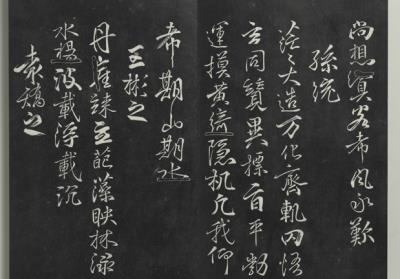 尚想嘉客希風永歎
孫統
茫々大造万化齊軌罔悟
玄同競異標旨平勃
運謨黃綺隱机凡我仰
希期山期水
王彬之
丹崖竦立葩藻映林淥
水揚波載浮載沉
袁嶠之